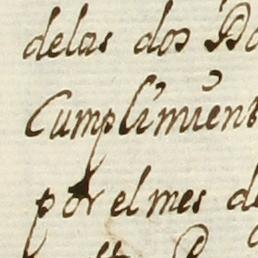 delas dos
Cumplimient
por el mes de